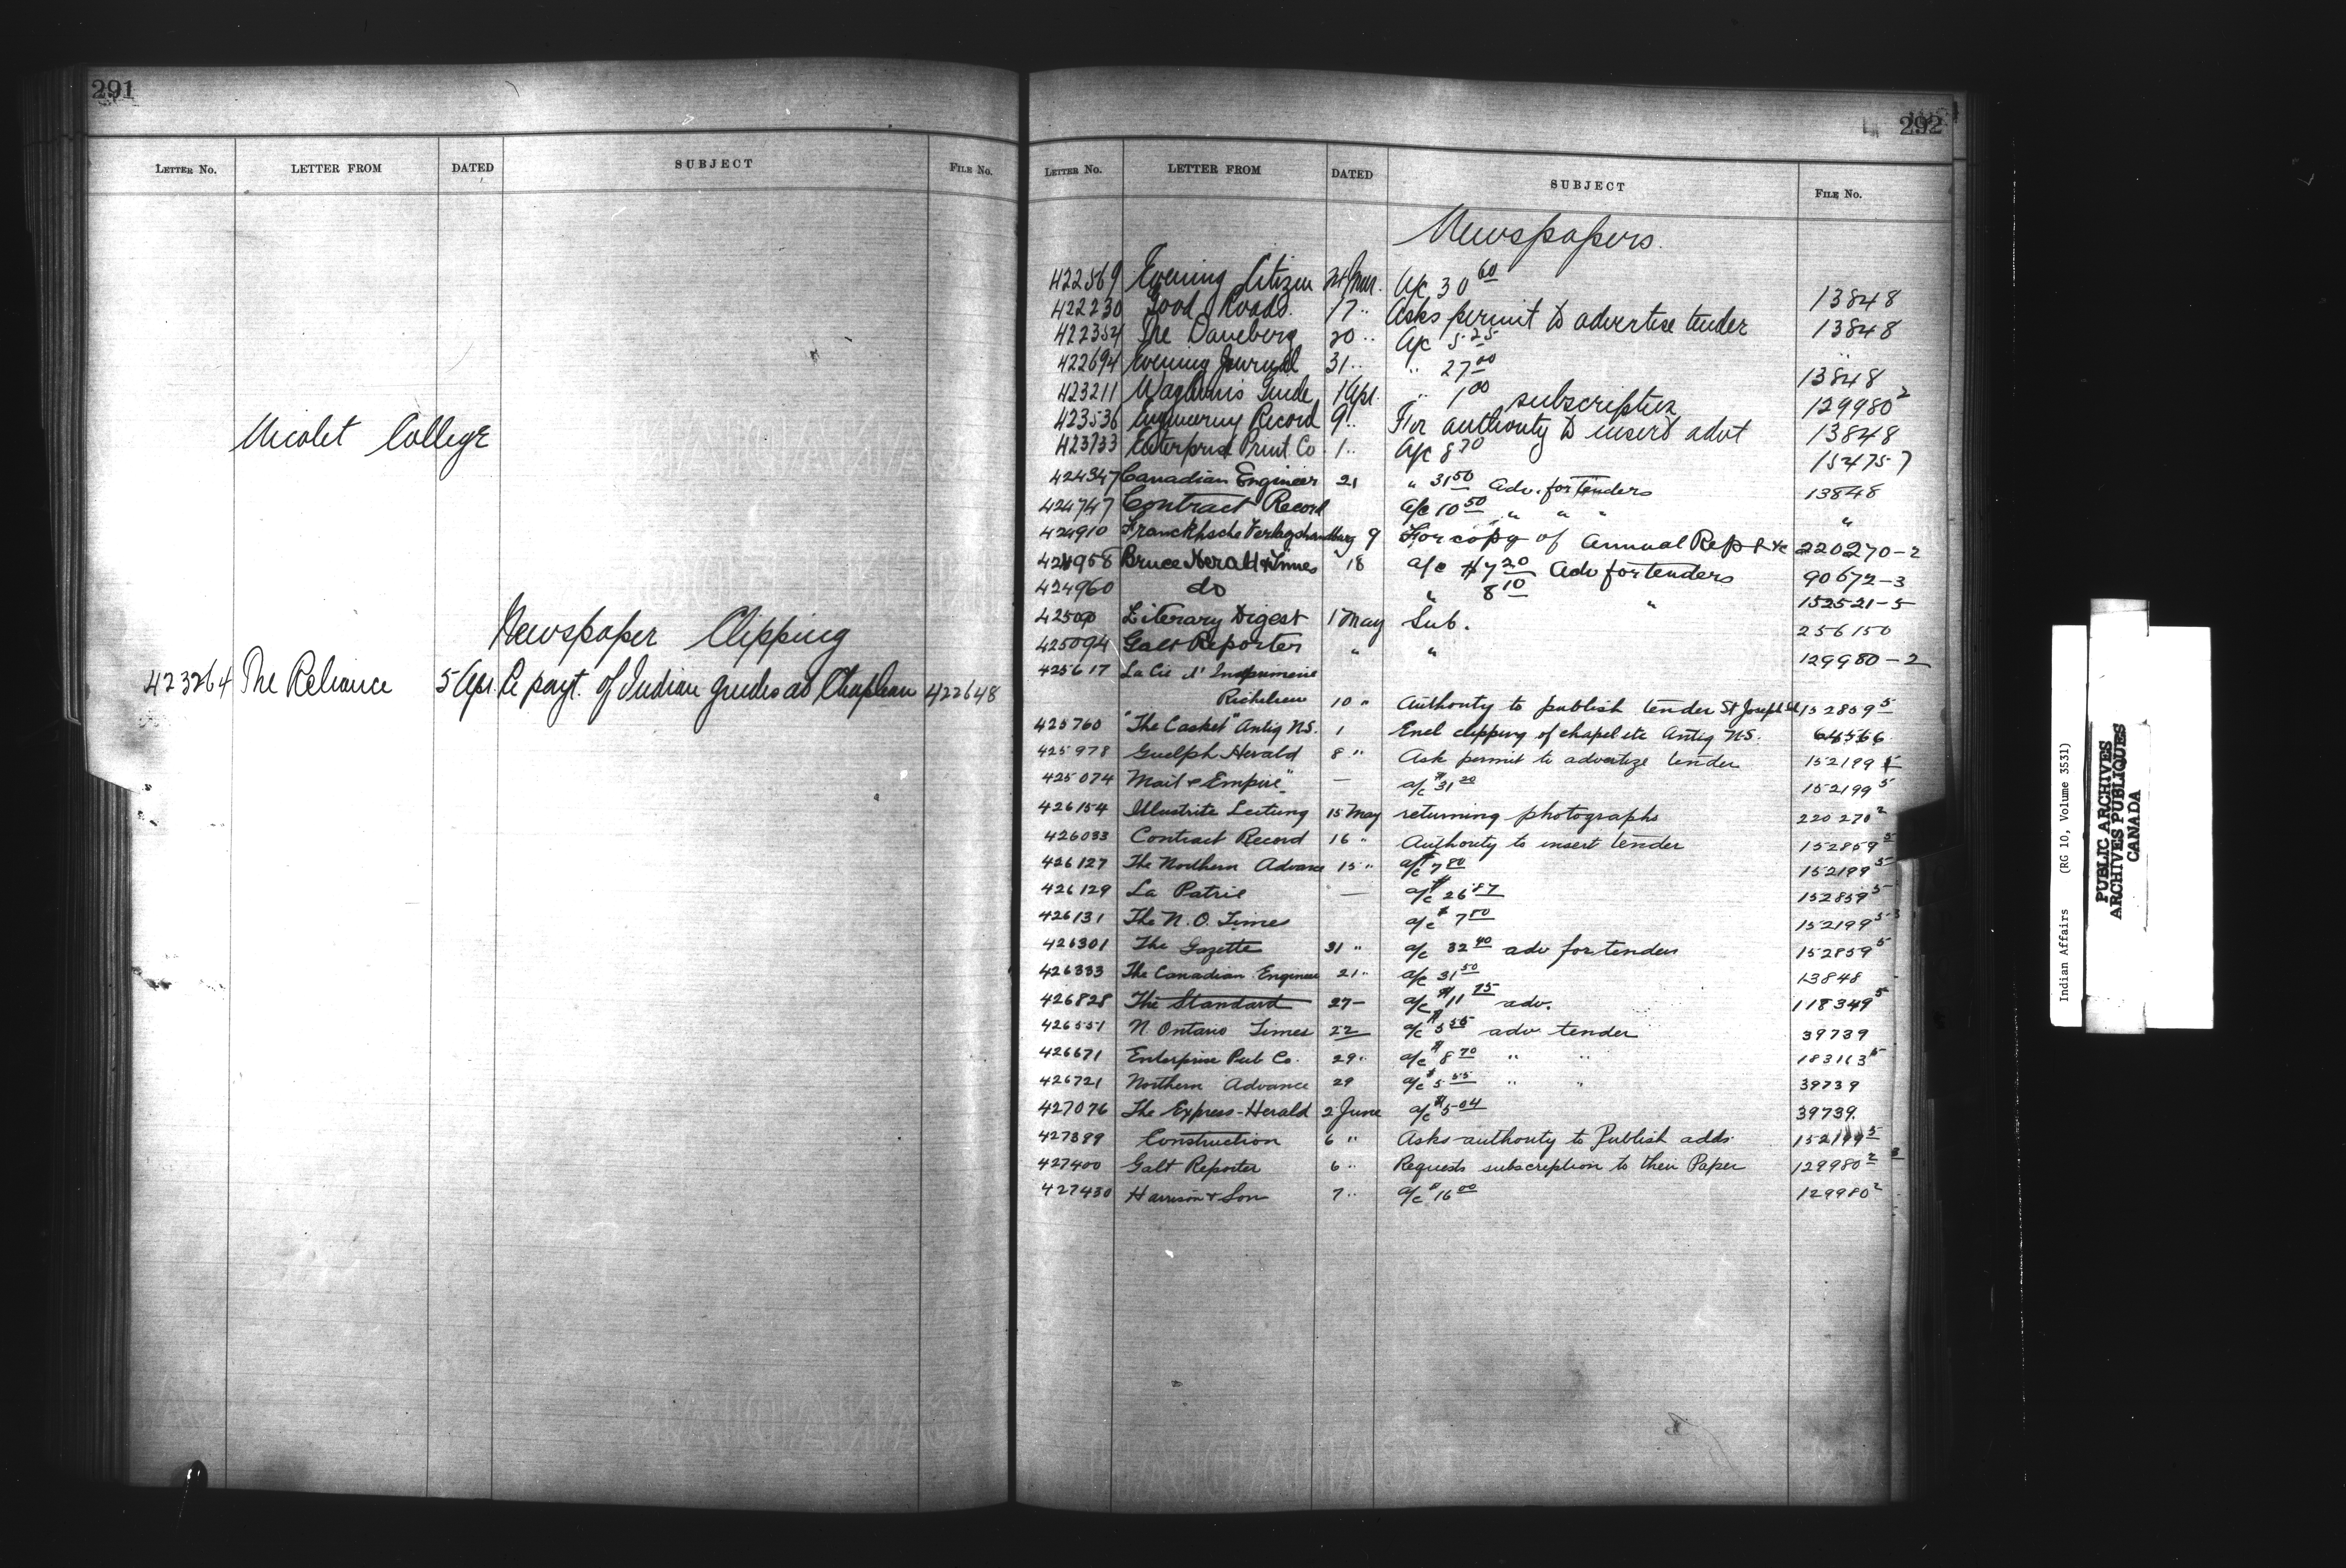 291
LETTER No. LETTER FROM DATED SUBJECT FILE No.
Nicolet College
Newspaper Clipping
423264 The Reliance 5 Apr. Re payt. of Indian guides at Chapleau 422648
292
LETTER No. LETTER FROM DATED SUBJECT FILE No.
Newspapers.
422569 Evening Citizen 24 Mar. a/c 30 60 13848
422230 Good Roads. 17 " Asks permit to advertise tender 13848
422354 The 20 " a/c 5.25
422694 Evening Journal 31 " " 27 00 13848
423211 Guide 1 Apr. " 1 00 subscription 129980 2
423536 Engineering Record 9 " For authority to insert advt 13848
423733 Enterprise Print Co. 1 " a/c 8 70 152475-7
424347 Canadian Engineer 21 " 31 50 Adv. for Tenders 13848
424747 Contract Record a/c 10 50 " " " "
424910 Franckhsche 9 For copy of Annual Rep & c 220270-2
424958 Bruce Herald & Times 18 a/c $7 20 Adv for tenders 90672-3
424960 do " 8 10 " 152521-5
Literary Digest 1 May Sub. 256150
425094 Galt Reporter " " 129980-2
425617 La Cie d'Imprimerie
Richelieu 10 " Authority to publish tender St Joseph 152859 5
425760 "The Casket" Antig N.S. 1 Encl clipping of chapel etc Antig N.S. 64566
425978 Guelph Herald 8 " Ask permit to advertize tender 152199 5
425074 "Mail & Empire" — a/c $31 20 152199 5
426154 Illustrite Zeitung 15 May returning photographs 220270 2
426033 Contract Record 16 " Authority to insert tender 152859 5
426127 The Northern Advance 15 " a/c $7 80 152199 5
426129 La Patrie — a/c $26 87 152859 5
426131 The N. O. Times a/c $7 80 152199 5
426301 The Gazette 31 " a/c 32 40 adv for tenders 152859 5
426333 The Canadian Engineer 21 " a/c 31 50 13848
426828 The Standard 27 - a/c $11 75 adv. 118349 5
426551 N. Ontario Times 22 a/c $5 55 adv tender 39739
426671 Enterprise Pub Co. 29 " a/c $8 70 " " 183163 5
426721 Northern Advance 29 a/c $5 55 " " 39739
427076 The Express-Herald 2 June a/c $5-04 39739.
427399 Construction 6 " Asks authority to Publish adds. 152199 5
427400 Galt Reporter 6 " Requests subscription to their Paper 129980 2
427430 Harrison & Son 7 " a/c $16 00 129980 2
Indian Affairs (RG 10, Volume 3531)
PUBLIC ARCHIVES
ARCHIVES PUBLIQUES
CANADA